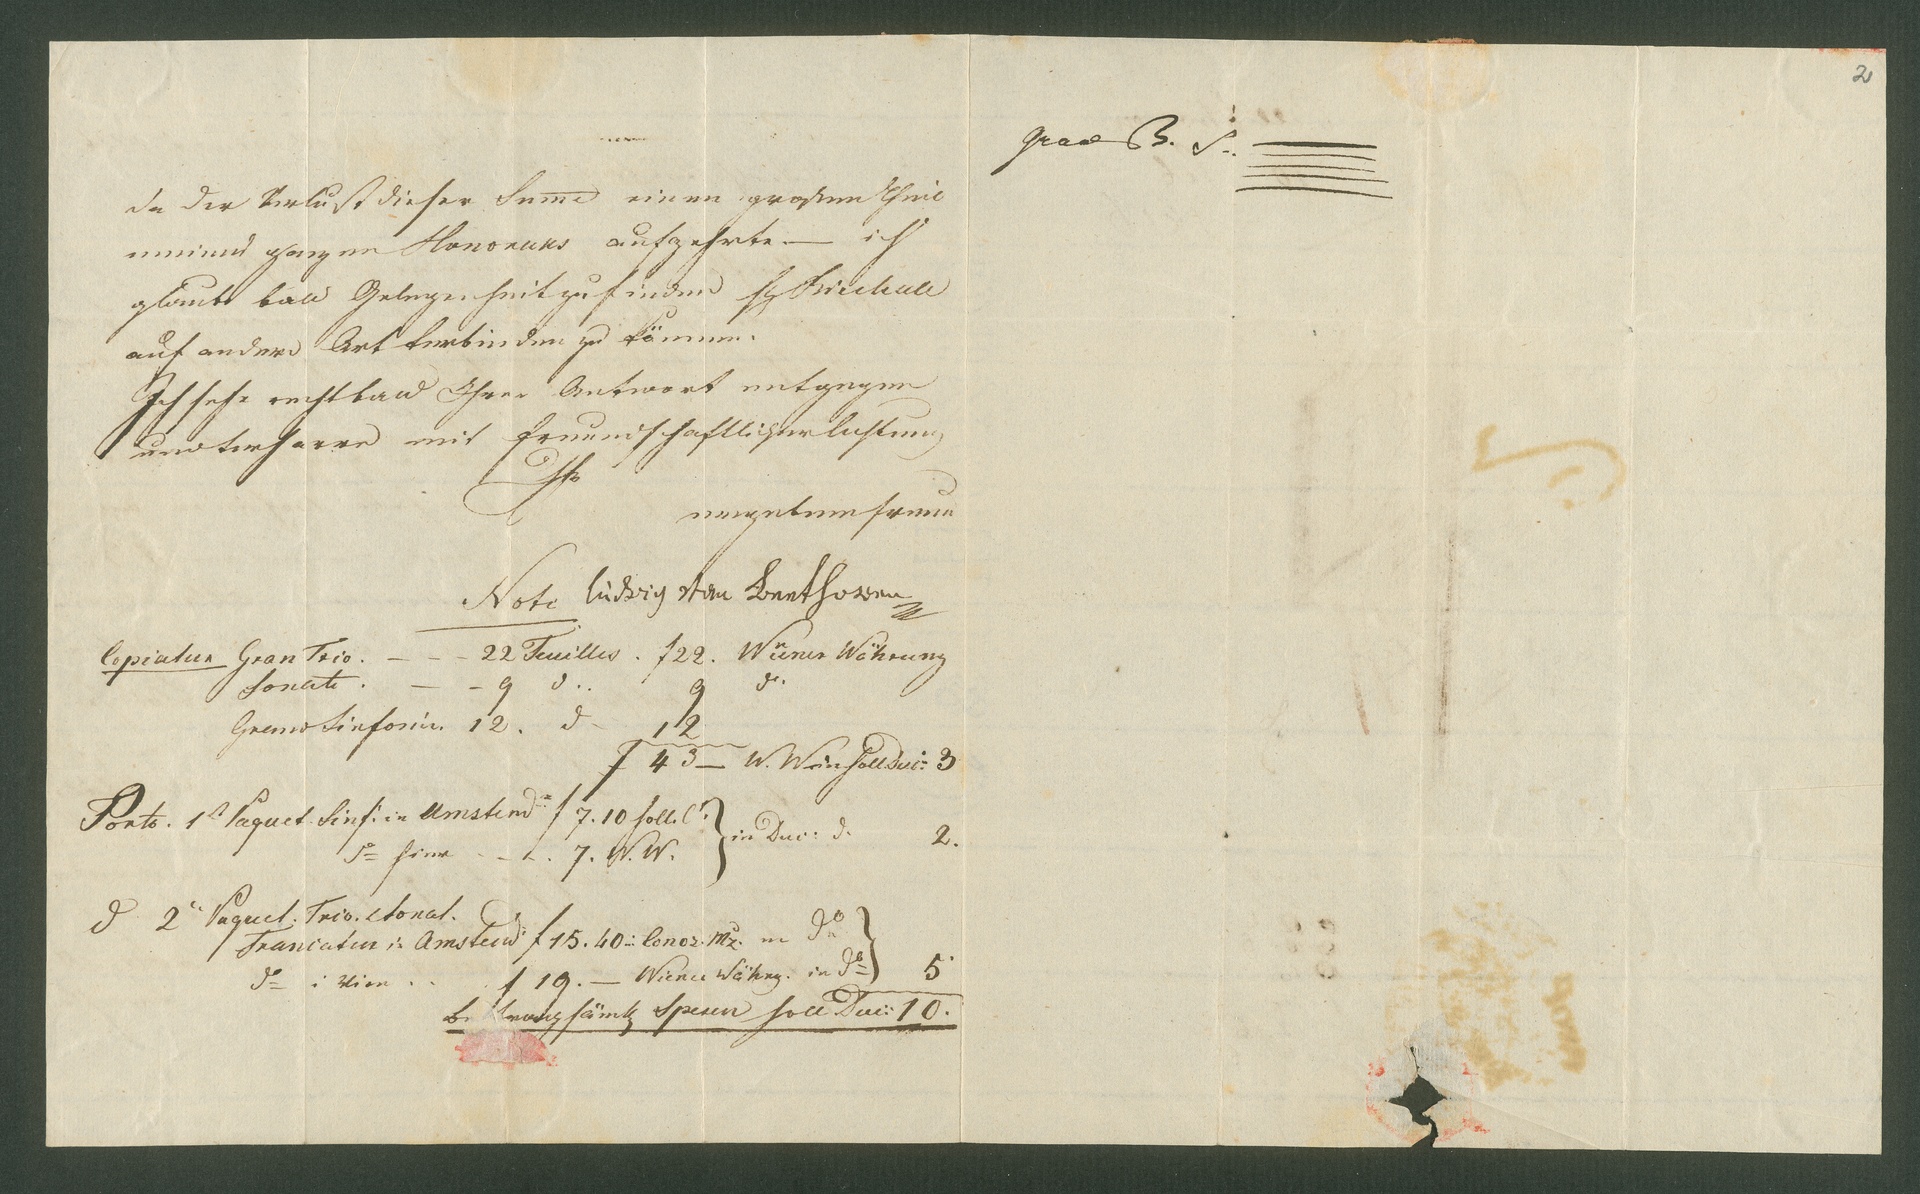 da der Verlust dieser Summe einen großen Theil
meines ganzen Honorars aufzehrte — ich
glaube bald Gelegenheit zu finden H Birchall
auf andere Art verbinden zu können.
Ich sehe recht bald Ihrer Antwort entgegen
und verharre mit freundschaftlicher Achtung
Ihr
ergebener Freund
Note ludwig van Beethoven
Copiatur Gran Trio. — — — 22 Feuilles . f 22. Wiener Währung
Sonate . — — 9 d.. 9 do.
Gran Sinfonie. 12. d — 12
f 43 — W. W. in holl Duc: 3
Porto. 1s Paquet. Sinf: in Amsterd: f 7. 10 holl. Ct. } in Duc: d. 2.
do hier . - . 7. W. W.
d 2 Paquet. Trio. et Sonat.
Francatur in Amsterd: f 15. 40 Convz. Mz. in do }
do in Wien . . f 19. — Wiener Währg. in do } 5
Betrag sämtl Spesen holl Duc: 10.
2